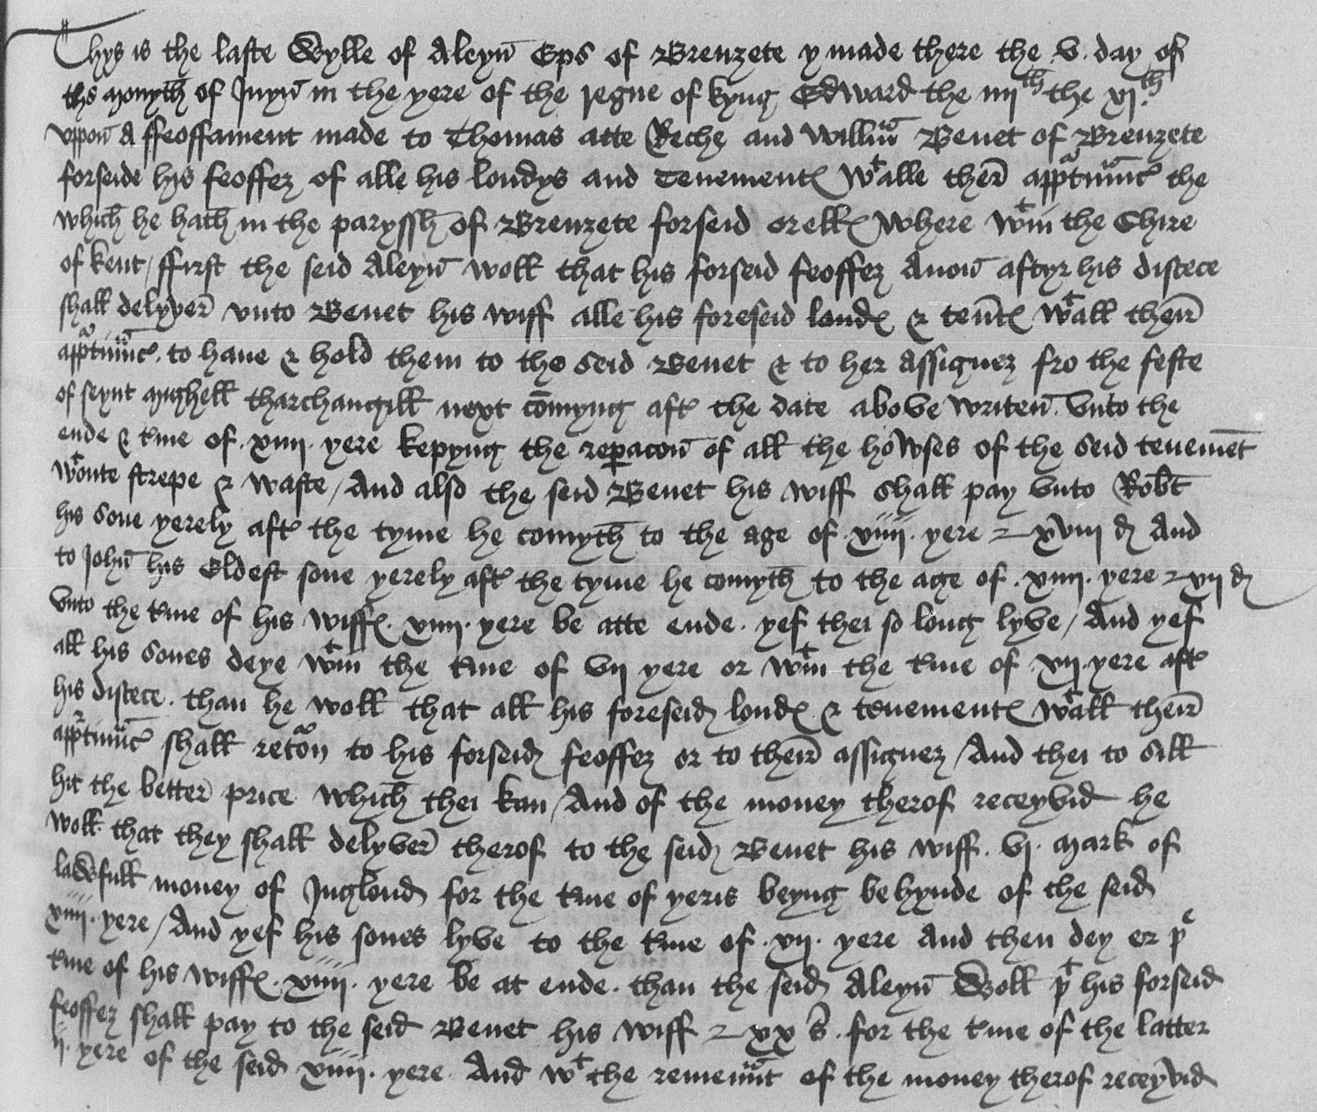 Thys is the laste Wylle of Aleyn Eps of Brenzete y made there the v. day of
the monyth of Juyn in the yere of the regne of kyng Edward the iiijth the xj.th
vppon A ffeoffament made to Thomas atte Reche and Willm Benet of Brenzete
forseide his feoffez of alle his londys and Tenement wt alle ther apptinnc the
which he hath in the paryssh of Brenzete forseid or ell where wtin the Shire
of kent / ffirst the seid Aleyn woll that his forseid feoffez Anon aftyr his discece
shall delyver vnto Benet his wiff alle his foreseid lond & tent wt all their
apptinnc. to haue & hold them to the seid Benet & to her assignez fro the feste
of seynt mighell tharchangill next comyng aft the date above writen. vnto the
ende & tme of . xiiij . yere kepyng the repacon of all the howses of the seid tenement
wtoute strepe & waste / And also the seid Benet his wiff shall pay vnto Robt
his sone yerely aft the tyme he comyth to the age of . xiiij . yere xviij d And
to John his Eldest sone yerely aft the tyme he comyth to the age of . xiiij . yere xij d
vnto the tme of his wiff . xiiij . yere be atte ende . yef thei so long lyve / And yef
all his sones deye wtin the tme of vij yere or wtin the tme of xij . yere aft
his discece . than he woll that all his foreseid lond & tenement wt all their
apptinnc shall reton to his forseid feoffez or to their assignez / And thei to sill
hit the better price which thei kan / And of the money therof receyvid he
woll that they shall delyver therof to the seid Benet his wiff . vj . mark of
lawfull money of Inglond for the tme of yeris beyng behynde of the seid
xiiij . yere / And yef his sones lyve to the tme of . xij . yere And then dey er þe
tme of his wiff . xiiij . yere be at ende . than the seid Aleyn Woll þt his forseid
feoffez shall pay to the seid Benet his wiff xx s . for the tme of the latter
ij . yere of the seid xiiij . yere . And wt the remennt of the money therof receyvid